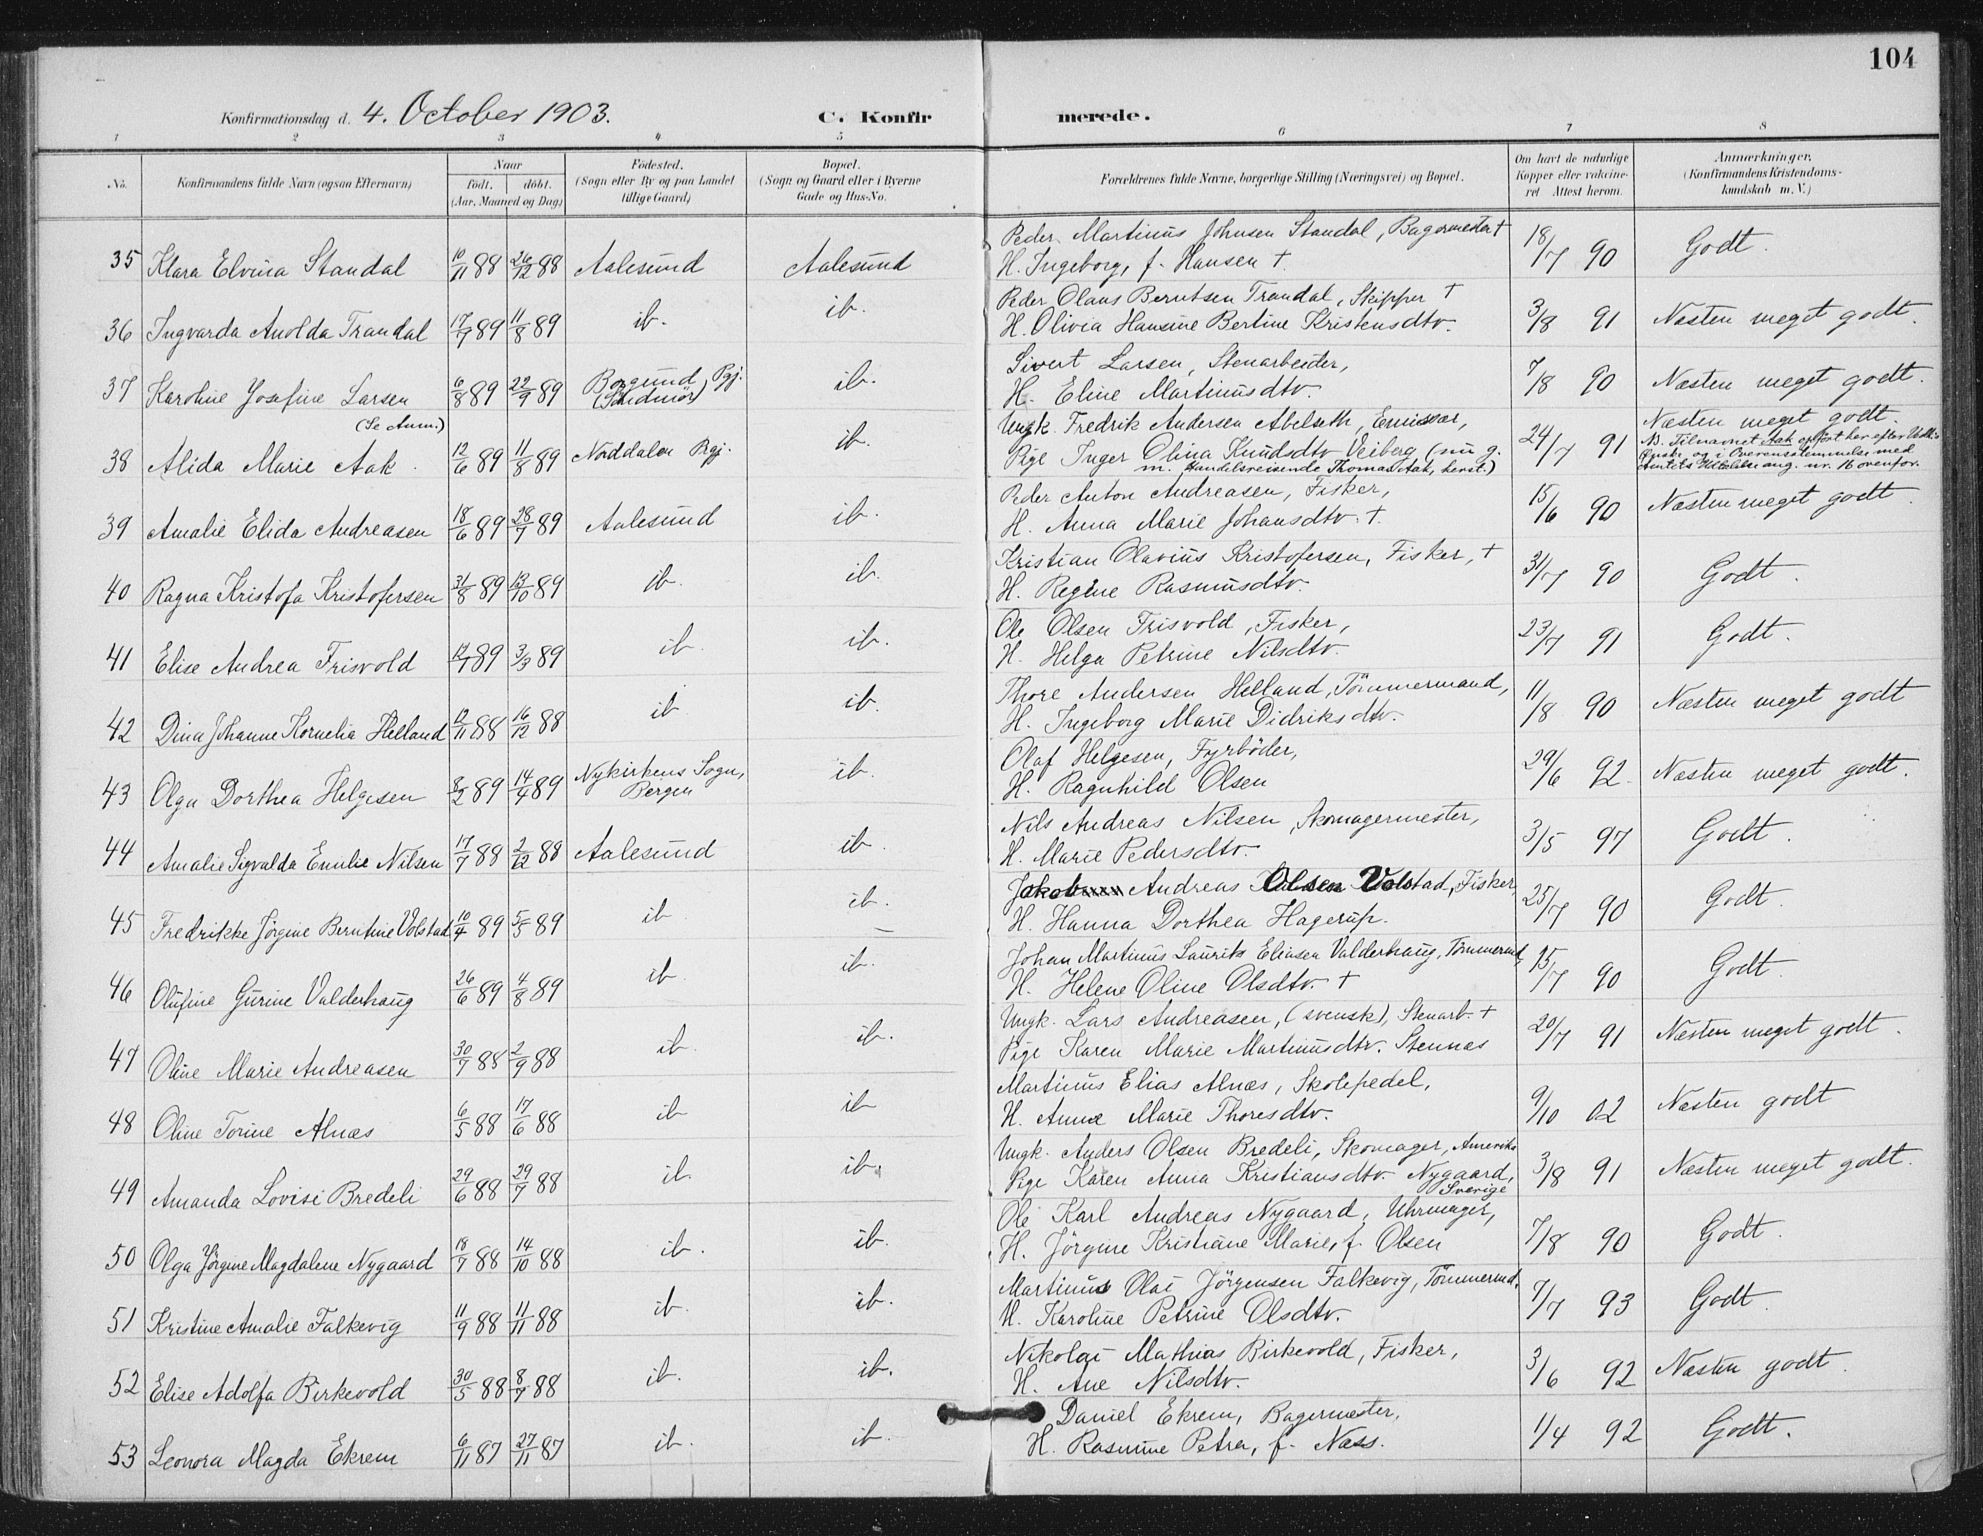 104
Konfirmationsdag d. 4. October 1903. C. Konfirmerede.
1 2 3 4 5 6 7 8
No. Konfirmandens fulde Navn (ogsaa Efternavn) Naar født. døbt. (Aar, Maaned og Dag) Fødested. (Sogn eller By og paa Landet tillige Gaard) Bopæl. (Sogn og Gaard eller i Byerne Gade og Hus-No. Forældrenes fulde Navne, borgerlige Stilling (Næringsvei) og Bopæl. Om havt de naturlige Kopper eller vakcineret Attest herom. Anmærkninger. (Konfirmandens Kristendomskundskab m. V.)
35 Klara Elvina Standal 10/11 88 26/12 88 Aalesund Aalesund Peder Martinus Johnsen Standal, Bagermester †
H. Ingeborg, f. Hansen †. 18/7 90 Godt.
36 Ingvarda Anolda Trandal 17/7 89 11/8 89 ib. ib. Peder Olaus Berntsen Trandal, Skipper †
H. Olivia Hansine Bertine Kristensdtr. 3/8 91 Næsten meget godt.
37 Karoline Josefine Larsen (Se Anm.) 6/8 89 22/9 89 Borgund Pgj. (Søndmør) ib. Sivert Larsen, Stenarbeider,
H. Eline Martinusdtr. 7/8 90 Næsten meget godt.
38 Alida Marie Aak 12/6 89 11/8 89 Norddalen Pgj. ib. Ungk. Fredrik Andersen Abelseth, Emissær,
Pige Inger Olina Knudsdtr Veiberg (nu g.
m. Handelsreisende Thomas Aak, herst.) 24/7 91 Næsten meget godt.
NB. Tilnavnet Aak opført her efter
Ønske og i Overensstemmelse med
Amtets ang. nr. 16 ovenfor.
39 Amalie Elida Andreasen 18/6 89 28/7 89 Aalesund ib. Peder Anton Andreasen, Fisker,
H. Anna Marie Johansdtr. †. 15/6 90 Næsten meget godt.
40 Ragna Kristofa Kristofersen 31/8 89 13/10 89 ib. ib. Kristian Olavius Kristofersen, Fisker, †
H. Regine Rasmusdtr. 31/7 90 Godt.
41 Elise Andrea Frisvold 89 3/3 89 ib. ib. Ole Olsen Frisvold, Fisker,
H. Helga Petrine Nilsdtr. 23/7 91 Godt.
42 Dina Johanne Kornelia Helland 12/11 88 16/12 88 ib ib. Thore Andersen Helland, Tömmermand,
H. Ingeborg Marie Didriksdtr. 11/8 90 Næsten meget godt
43 Olga Dorthea Helgesen 8/2 89 14/4 89 Nykirkens Sogn, Bergen ib. Olaf Helgesen, Fyrböder,
H. Ragnhild Olsen 29/6 92. Næsten meget godt.
44 Amalie Sigvalda Emilie Nilsen 17/7 88 2/12 88 Aalesund ib. Nils Andreas Nilsen, Skomagermester,
H. Marie Pedersdtr. 3/5 97 Godt.
45 Fredrikke Jörgine Berntine Volstad 10/4 89 5/5 89 ib ib. Jakob Andreas Olsen Volstad, Fisker,
H. Hanna Dorthea Hagerup. 25/7 90 Godt.
46 Olufine Gurine Valderhaug 26/6 89 4/8 89 ib. ib. Johan Martinus Laurits Eliasen Valderhaug, Tömmermd,
H. Helene Oline Olsdtr. † 15/7 90 Godt.
47 Oline Marie Andreasen 30/7 88 2/9 88 ib. ib. Ungk. Lars Andreasen, (svensk), Stenarb. †
Pige Karen Marie Martinusdtr. Stennæs 20/7 91 Næsten meget godt.
48 Oline Torine Alnæs 6/5 88 17/6 88 ib ib Martinus Elias Alnæs, Skolepedel,
H. Anna Marie Thoresdtr. 9/10 02 Næsten godt
49 Amanda Lovise Bredeli 29/6 88 29/7 88 ib. ib. Ungk. Anders Olsen Bredeli, Skomager, Amerika
Pige Karen Anna Kristiansdtr. Nygaard,
Sverige 3/8 91 Næsten meget godt.
50 Olga Jörgine Magdalene Nygaard 18/7 88 14/10 88 ib. ib. Ole Karl Andreas Nygaard, Uhrmager,
H. Jörgine Kristiane Marie, f. Olsen 7/8 90 Godt.
51 Kristine Amalie Falkevig 11/9 88 11/11 88 ib. ib. Martinus Olai Jörgensen Falkevig, Tömmermd.
H. Karoline Petrine Olsdtr. 7/7 93 Godt.
52 Elise Adolfa Birkevold 30/5 88 8/7 88 ib. ib. Nikolai Mathias Birkevold, Fisker,
H. Ane Nilsdtr. 3/6 92 Næsten godt.
53 Leonora Magda Ekrem 6/11 87 27/11 87 ib. ib. Daniel Ekrem, Bagermester,
H. Rasmine Petra, f. Næss. 1/4 92 Godt.